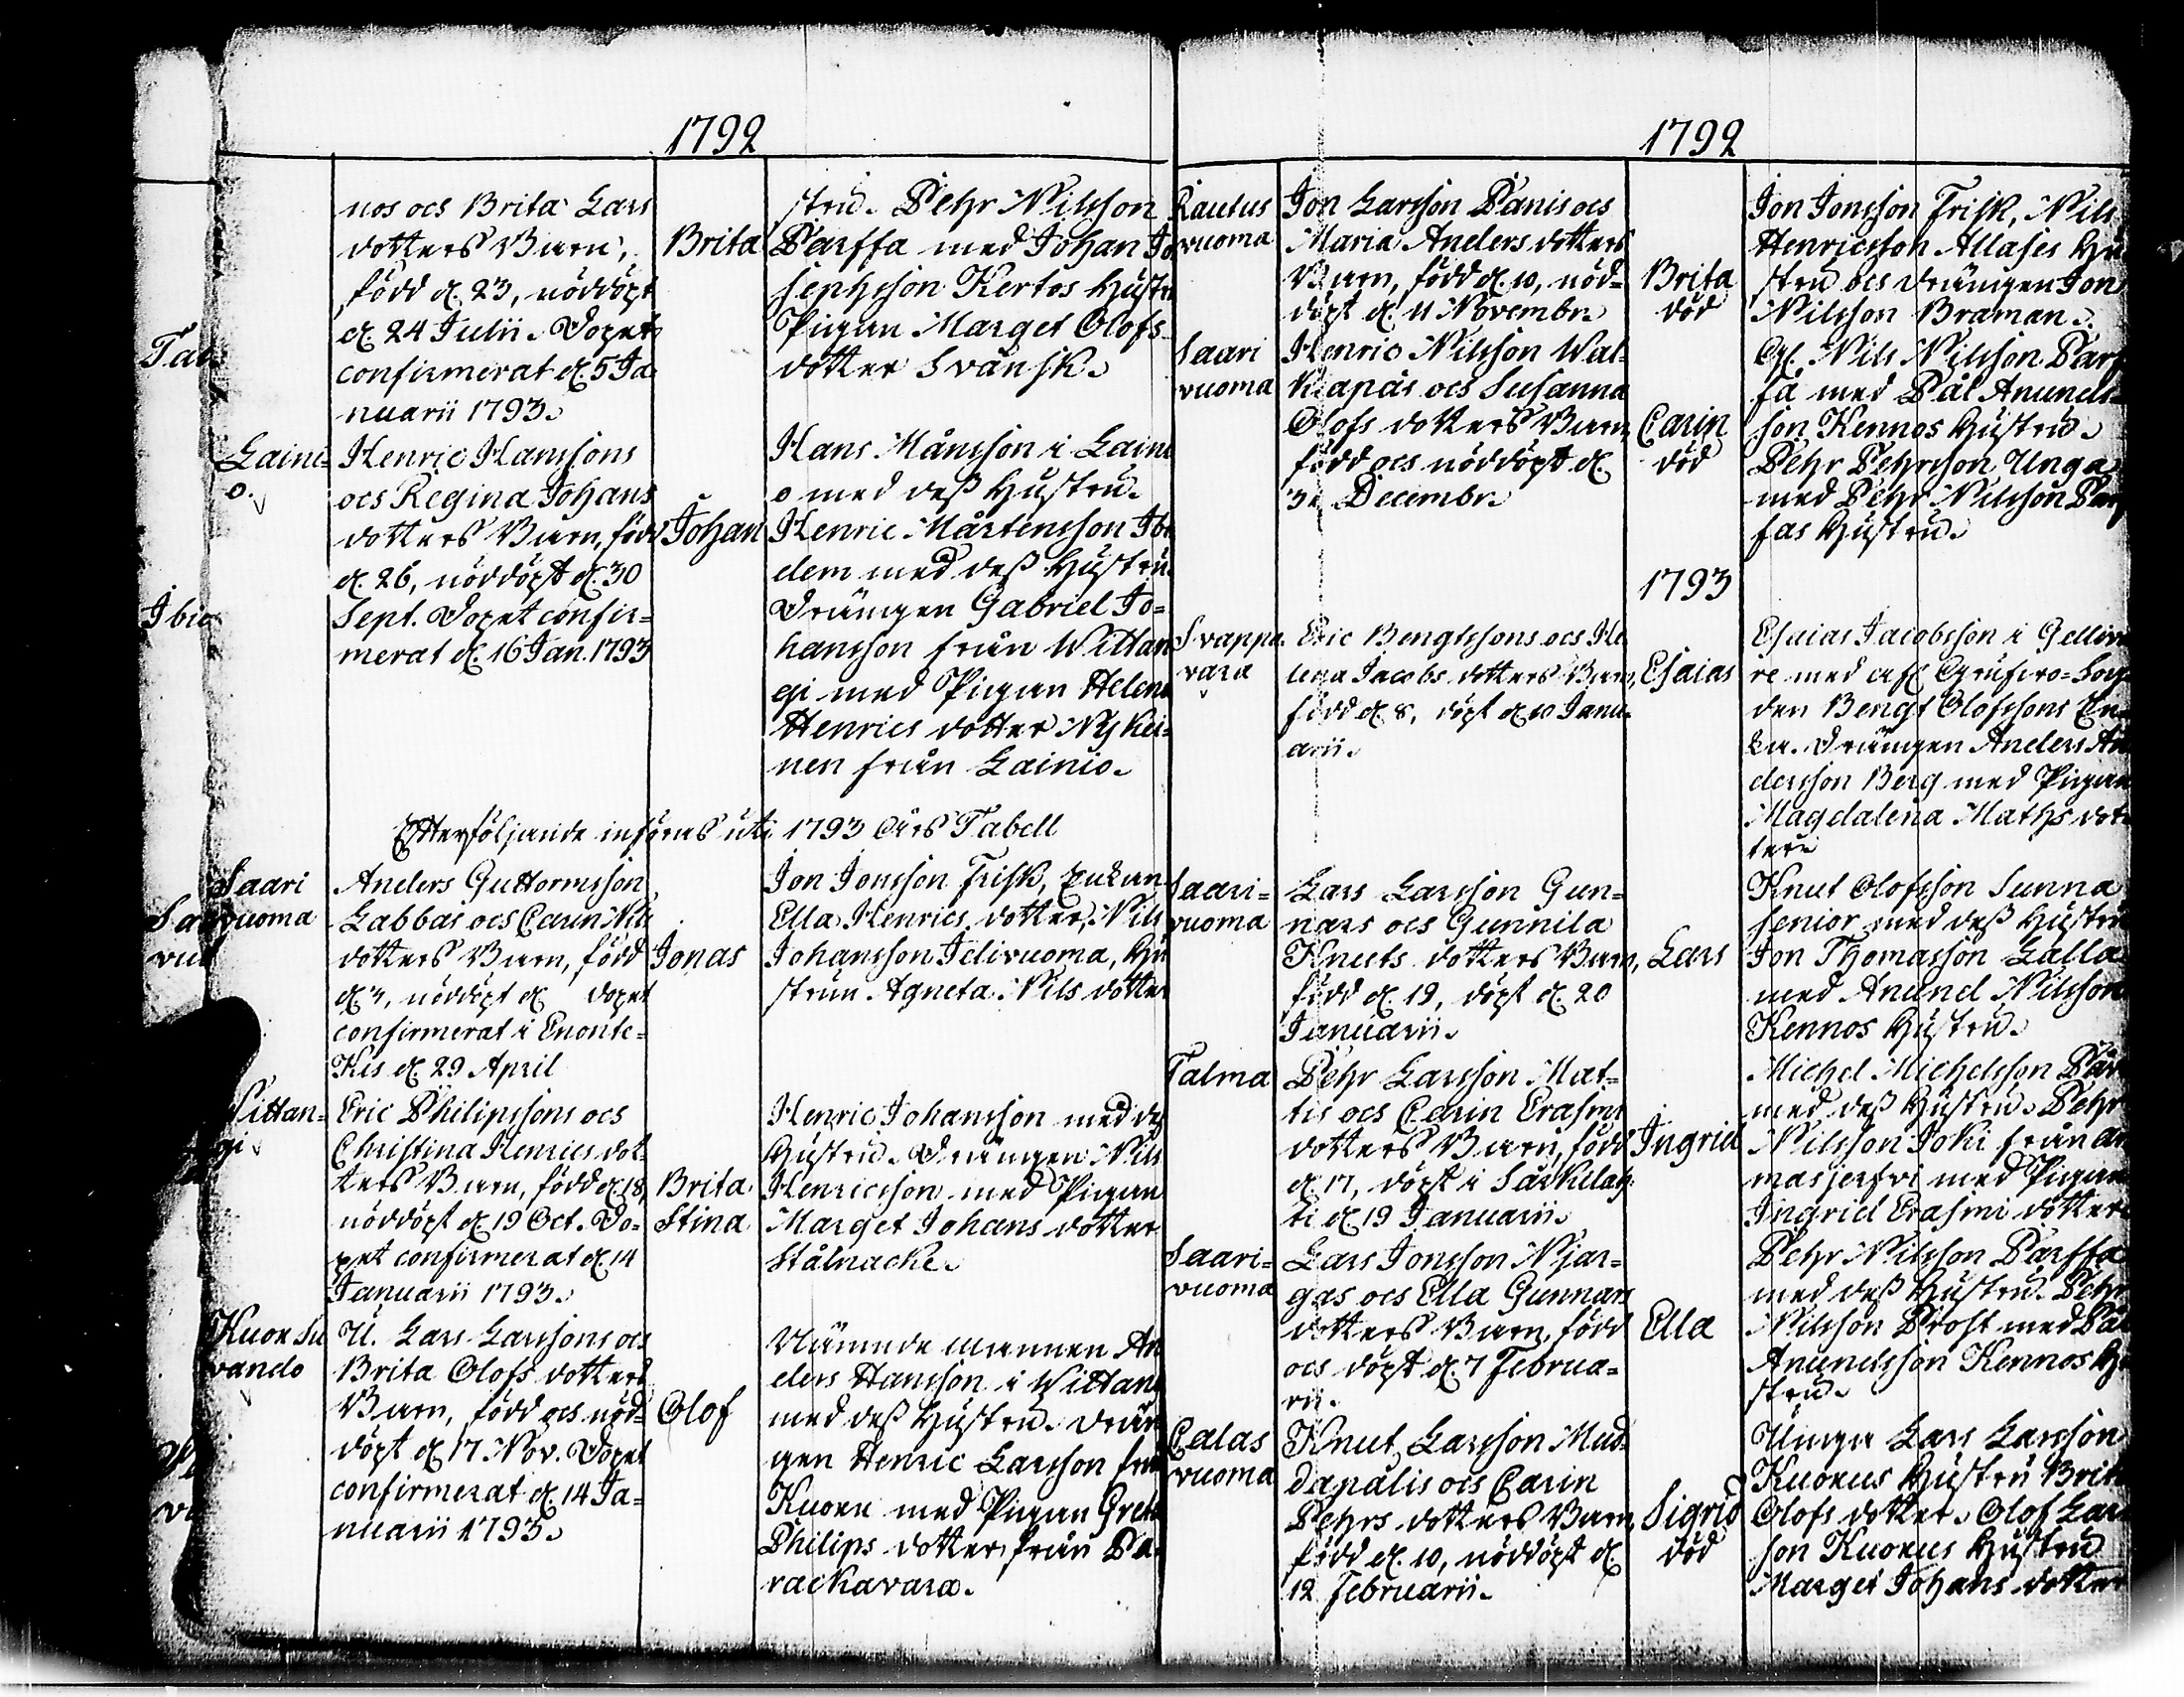 1792
nos och Brita Lars
dotters Barn,
född d. 23, nöddöpt
d. 24 Julii. Dopet
confirmerat d. 5 Ja
nuarii 1793.
Brita
stru. Pehr Nilsson
Parffa med Johan Jo
sephsson Kertos Hustr
Pigan Marget Olofs
dotter Svänsk.
Laini-
o.
Henric Hanssons
och Regina Johans
dotters Barn, född
d. 26, nöddöpt d. 30
Sept. Dopet confir-
merat d. 16 Jan. 1793
Johan
Hans Månsson i Laini
o med dess Hustru.
Henric Mårtensson Ibi
dem med dess Hustru.
Drängen Gabriel Jo-
hansson från Wittan
gi med Pigan Helena
Henrics dotter Nykei-
nen från Lainio.
Efterföljande införas uti 1793 Års Tabell
Saari
vuoma
Anders Guttormsson
Labbas och Carin Nils
dotters Barn, född
d. 3, nöddöpt d. dopet
confirmerat i Enonte-
Kis d. 29 April
Jonas
Jon Jonsson Frisk, Enkan
Ella Henrics dotter, Nils
Johansson Idivuoma, Hu
strun Agneta Nils dotter
Vittan-
gi.
Eric Philipssons och
Christina Henrics dot
ters Barn, född d. 18,
nöddöpt d. 19 Oct. Do-
pet confirmerat d. 14
Januarii 1793.
Brita
Stina
Henric Johansson med des
Hustru. Drängen Nils
Henricsson med Pigan
Marget Johans dotter
Stålnacke.
Kuoksu
vando
U. Lars Larssons och
Brita Olofs dotters
Barn, född och nöd-
döpt d. 17 Nov. Dopet
confirmerat d. 14 Ja-
nuarii 1793.
Olof
Nämnde mannen An
ders Hansson i Wittang
med dess Hustru. Drän
gen Henric Larsson från
Kuoxu med Pigan Greta
Philips dotter från Pa-
rackavara.
1792
Rautus
vuoma
Jon Larsson Panis och
Maria Anders dotters
Barn, född d. 10, nöd-
döpt d. 11 Novembr.
Brita
död
Jon Jonsson Frisk, Nils
Henricsson Allases Hu
stru och drängen Jon
Nilsson Braman.
Saari
vuoma
Henric Nilsson Wal-
kiapäs och Susanna
Olofs dotters Barn
född och nöddöpt d.
3. Decembr.
Carin
död
Gl. Nils Nilsson Parf
fa med Pål Anunds-
son Kennos Hustru.
Pehr Pehrsson Unga
med Pehr Nilsson Parf
fas Hustru.
1793
Svappa
vara
Eric Bengtssons och He
lena Jacobs dotters Barn,
född d. 8, döpt d. 10 Janu-
arii.
Esaias
Esaias Jacobsson i Gelliva
re med
den Bengt Olofssons En-
ka. Drängen Anders An
dersson Berg med Pigan
Magdalena Maths dot
ter.
Saari-
vuoma
Lars Larsson Gun-
nars och Gunnila
Knuts dotters Barn,
född d. 19, döpt d. 20
Januarii.
Lars
Knut Olofsson Sunna
senior med dess Hustru
Jon Thomasson Lalla
med Anund Nilsson
Kennos Hustru.
Talma
Pehr Larsson Mat-
tis och Carin Erasmi
dotters Barn, född
d. 17, döpt i Särkilah-
ti d. 19 Januarii.
Ingrid
Michel Michelsson Pär
med dess Hustru. Pehr
Nilsson Joki från
masjerfvi med Pigan
Ingrid Erasmi dotter
Saari-
vuoma
Lars Jonsson Njar-
gas och Ella Gunnars
dotters Barn, född
och döpt d. 7 Februa-
rii.
Ella
Pehr Nilsson Parffa
med dess Hustru. Pehr
Nilsson Prost med Pål
Anundsson Kennos Hu
stru.
Calas
vuoma
Knut Larsson Mud-
dapalis och Carin
Pehrs dotters Barn,
född d. 10, nöddöpt d.
12 Februarii.
Sigrid
död
Unga Lars Larsson
Kuoxus Hustru Brita
Olofs dotter. Olof Lars
son Kuoxus Hustru
Marget Johans dotter